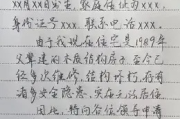 xx月xx日出生，家庭住址为xxx，
身份证号xxx，联系电话xxx。
由于我现在住宅是1989年
火草建的木质结构房子，至今已
经多次维修，结构
诸多安全隐患，实在无法居住。
因此，特向各位领导申请